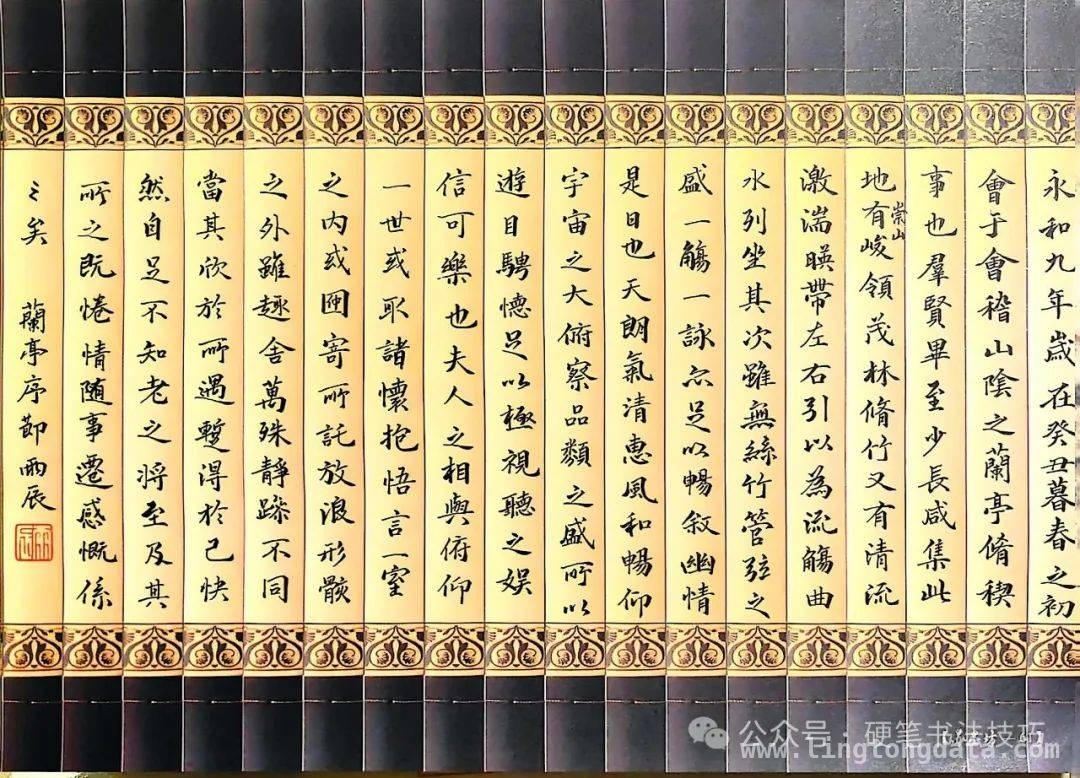 永和九年歲在癸丑暮春之初
會于會稽山陰之蘭亭脩稧
事也羣賢畢至少長咸集此
地有崇山峻領茂林脩竹又有清流
激湍暎帶左右引以為流觴曲
水列坐其次雖無絲竹管弦之
盛一觴一詠亦足以暢敘幽情
是日也天朗氣清惠風和暢仰
宇宙之大俯察品類之盛所以
遊目騁懷足以極視聽之娛
信可樂也夫人之相與俯仰
一世或取諸懷抱悟言一室
之內或因寄所託放浪形骸
之外雖趣舍萬殊靜躁不同
當其欣於所遇暫得於己快
然自足不知老之將至及其
所之既惓情隨事遷感慨係
之矣 蘭亭序節 雨辰
公众号·硬笔书法技巧
www.tingtongdata.com